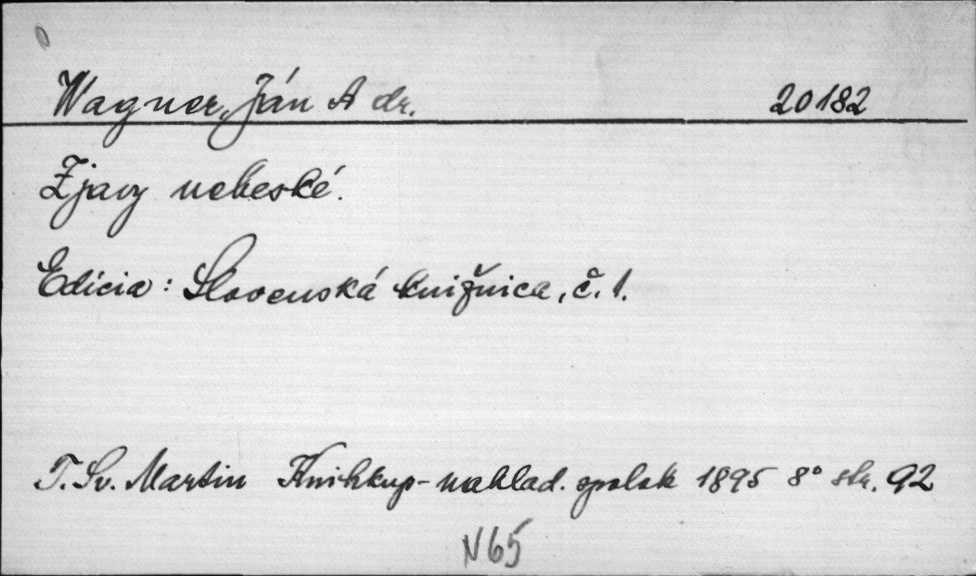 Wagner, Ján A dr. 20182
Zjavy nebeské.
Edícia: Slovenská knižnica, č. 1.
T. Sv. Martin Knihkup-naklad. spolok 1895 8° str. 92
N65